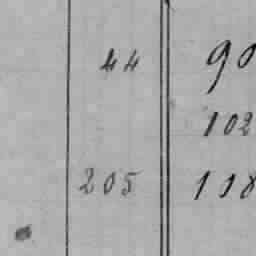 44 90
102
205 118